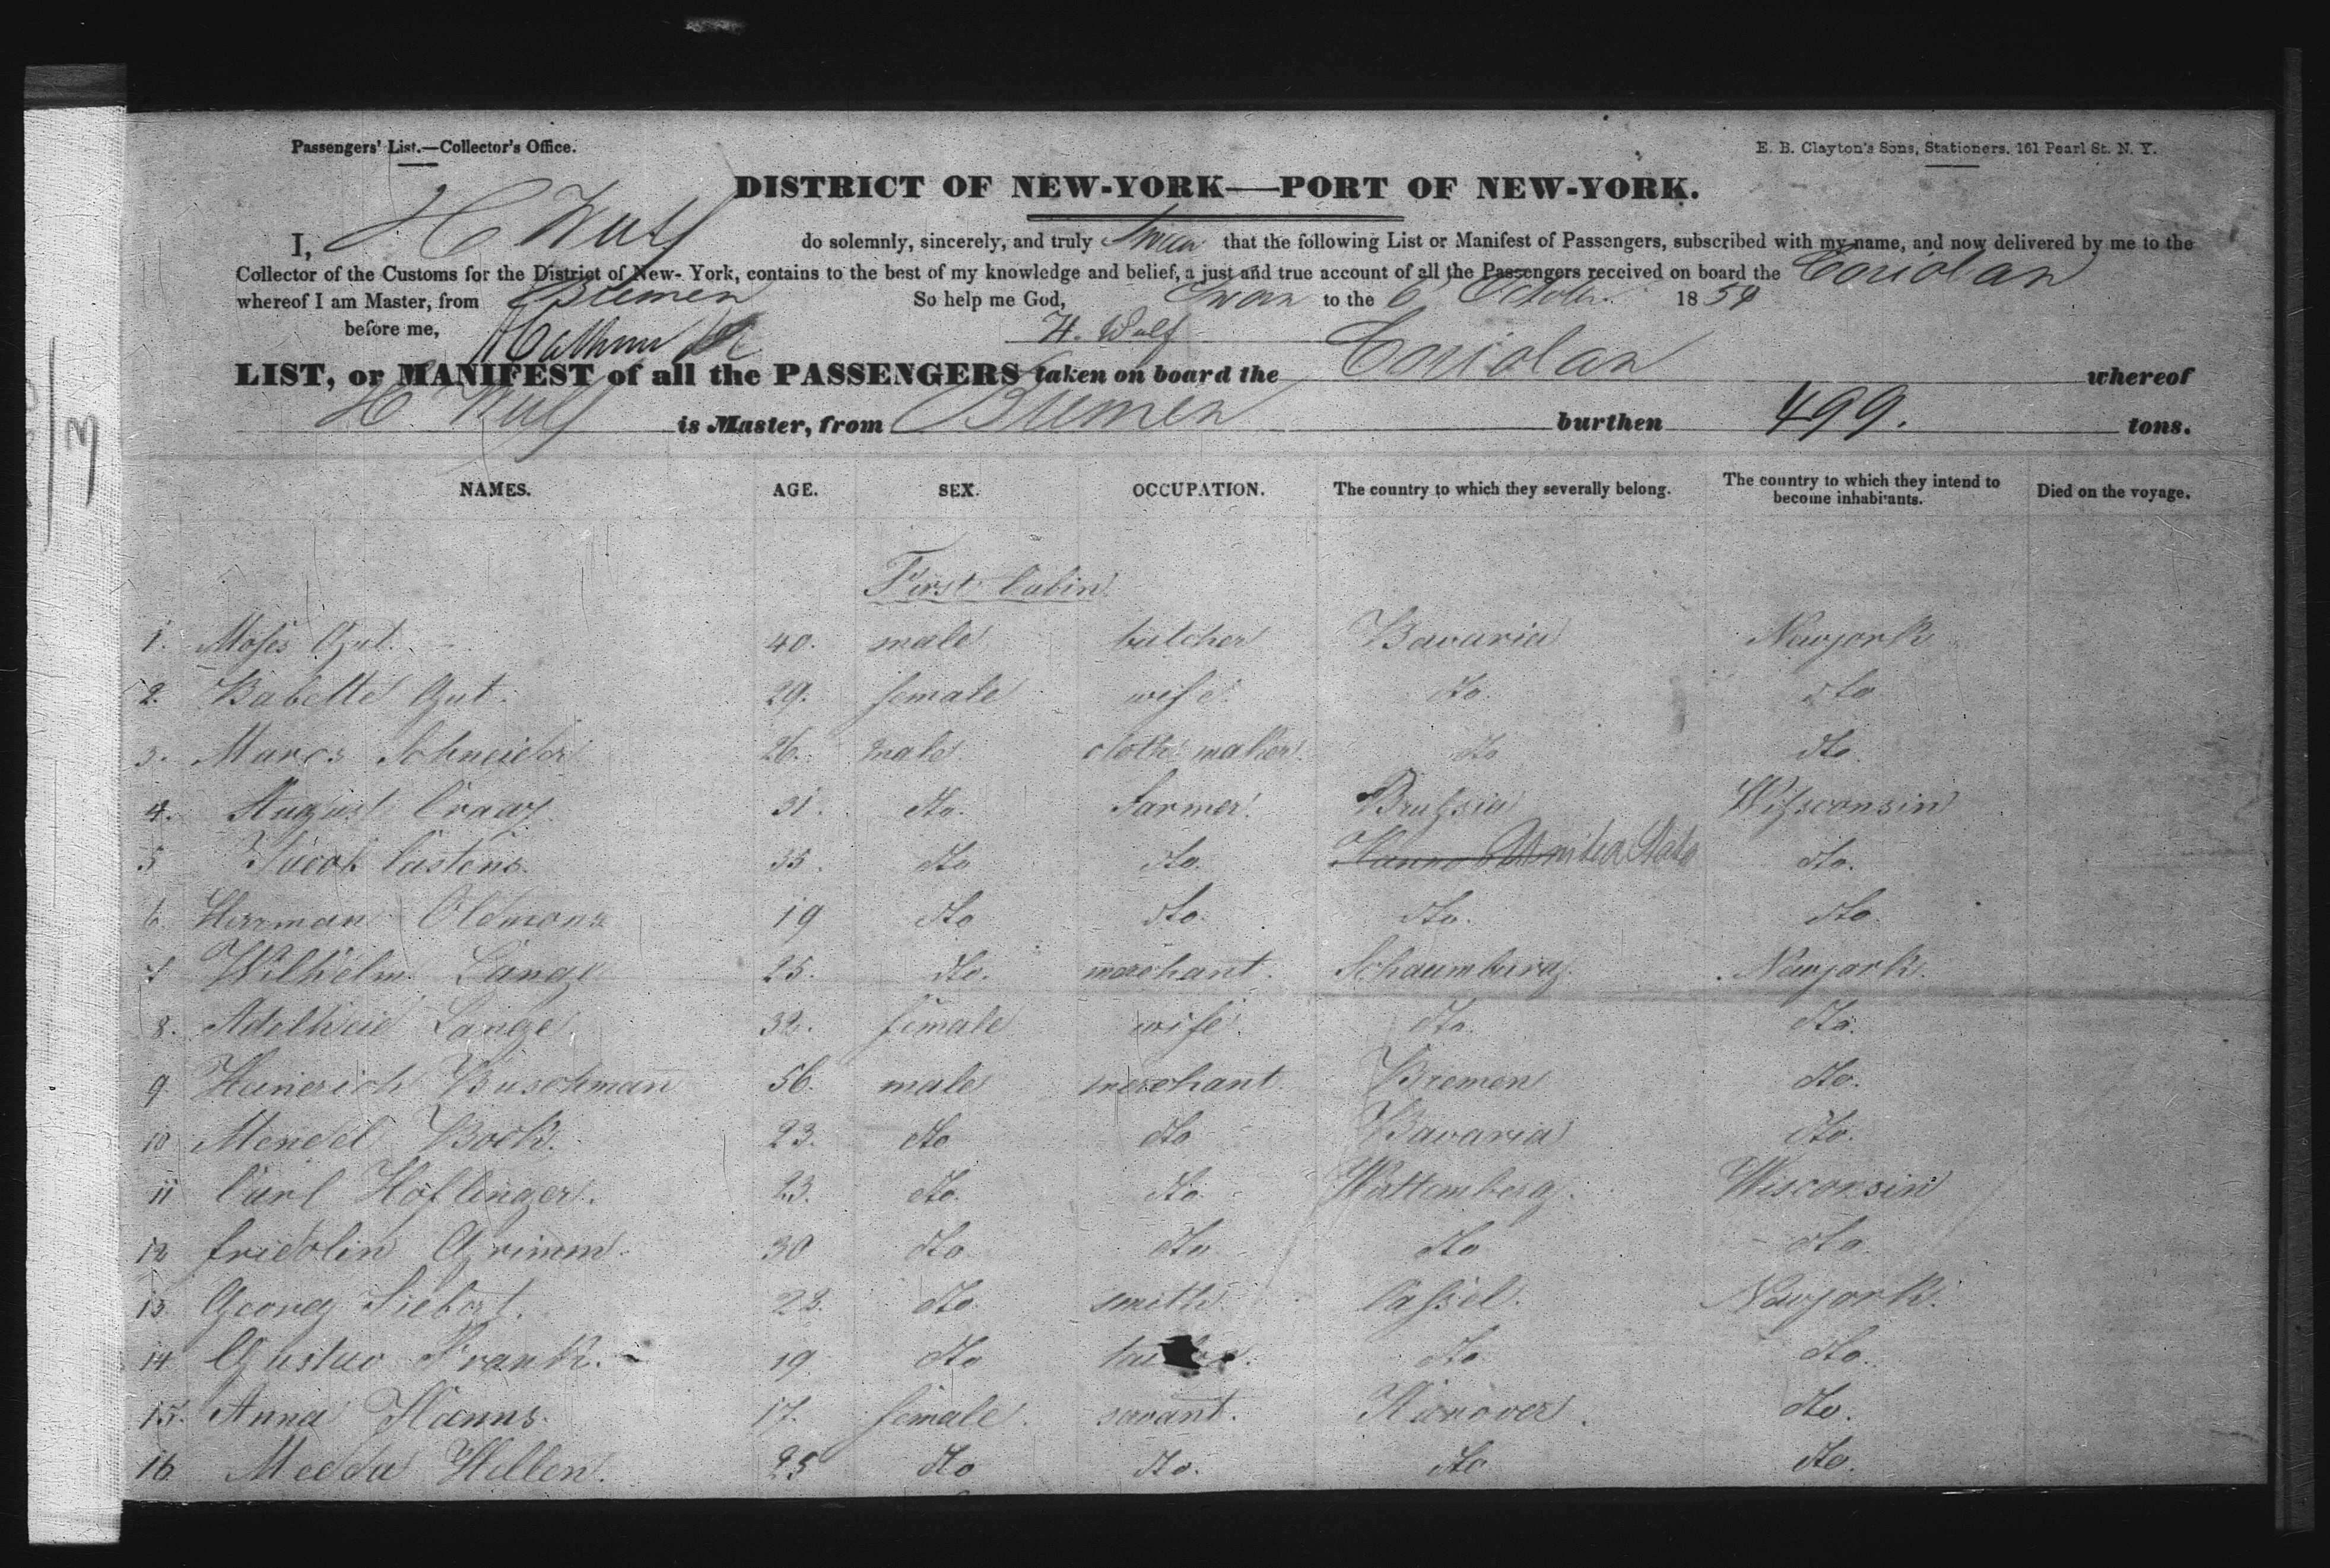 Passengers' List.—Collector's Office.
E. B. Clayton's Sons, Stationers. 161 Pearl St. N. Y.
DISTRICT OF NEW-YORK—PORT OF NEW-YORK.
I, H Wulf do solemnly, sincerely, and truly Swear that the following List or Manifest of Passengers, subscribed with my name, and now delivered by me to the
Collector of the Customs for the District of New-York, contains to the best of my knowledge and belief, a just and true account of all the Passengers received on board the Coriolan
whereof I am Master, from Bremen So help me God, Sworn to the 6 October 1854
before me, H. Wulf
LIST, or MANIFEST of all the PASSENGERS taken on board the Coriolan whereof
H Wulf is Master, from Bremen burthen 499. tons.
NAMES. AGE. SEX. OCCUPATION. The country to which they severally belong. The country to which they intend to become inhabitants. Died on the voyage.
First Cabin
1. Moses Gut. 40. male butcher Bavaria Newyork
2. Babette Gut. 29. female wife. do. do
3. Marcs Schneider 26. male. cloth maker. do do.
4. August 31. do. farmer. Prussia Wisconsin
5 Jacob Castens. 35. do do. Hanno United State do.
6 Herrman Oldmans 19 do do. do. do.
7 Wilhelm Lange 25. do. merchant. Schaumburg. Newyork.
8. Adelheid Lange 32. female wife. do. do.
9 Heinerich Buschman 56. male merchant Bremen do.
10 Mendel Bock. 23. do do Bavaria do.
11 Carl Hoflinger. 23. do. do. Wurttemberg. Wisconsin
12 fridolin Grimm. 30 do. do do do.
13 Georg Siebert. 23. do. smith. Cassel. Newyork.
14 Gustav Frank. 19 do do do.
15. Anna Harms. 17. female. sarvant. Hanover. do.
16 Medda Hellen. 25 do do. do do.